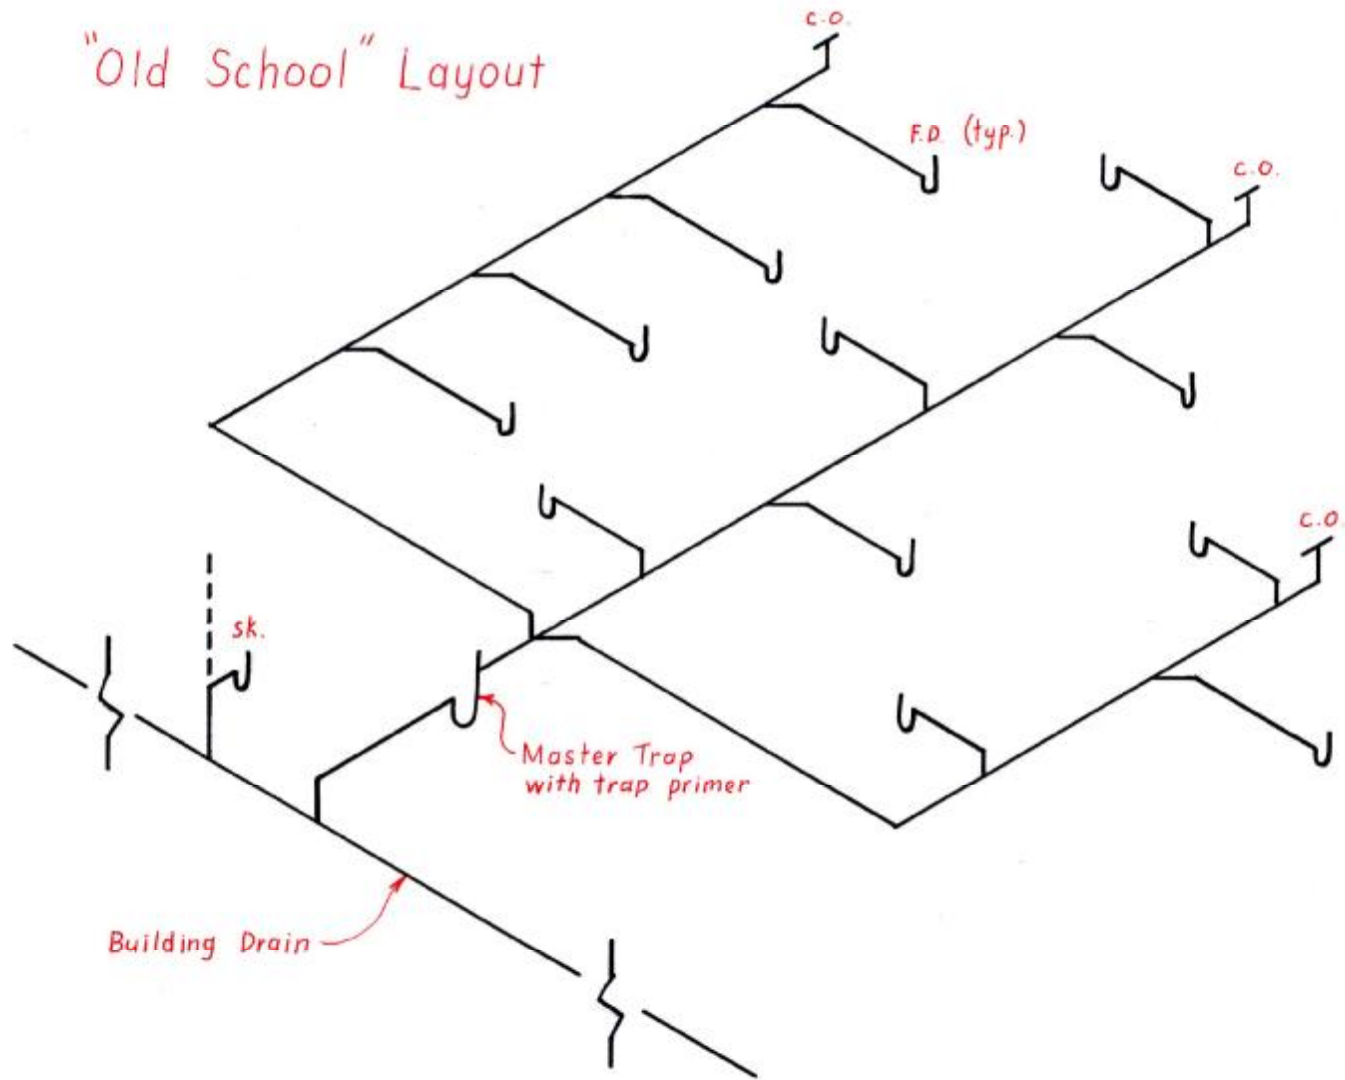 c.o.
"Old School" Layout
F.D. (typ.)
c.o.
c.o.
sk.
Master Trap
with trap primer
Building Drain